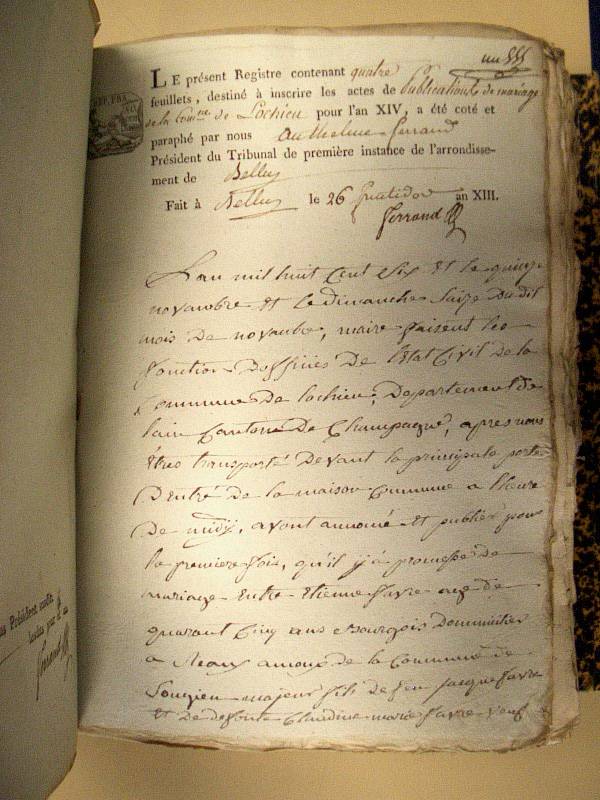 LE présent Registre contenant quatre
feuillets, destiné à inscrire les actes de Publications de mariage
de la Comne de Lochieu pour l'an XIV, a été coté et
paraphé par nous Anthelme Ferrand
Président du Tribunal de première instance de l'arrondisse-
ment de Belley
Fait à Belley le 26 fructidor an XIII.
Ferrand
L'an mil huit Cent Six et le quinze
novambre et le dimanche Saize du dit
mois de novambre, maire faisent les
fonction d'offisiés de l'état Civil de la
Commune de lochieu, Département de
lain Cantons de Champagne, apres nous
êtres transporté devant la principale porte
D'entré de la maison Commune a l'heure
de midy, avont annoncé et publier pour
la premiere fois, qu'il y à promesse de
mariage Entre Etienne favre age de
quarant Cinq ans Bourgois
a de la Commune de
Songieu majeur fils de feu jacque favre
et de defonte Claudine marie favre veuf
Président
Ferrand